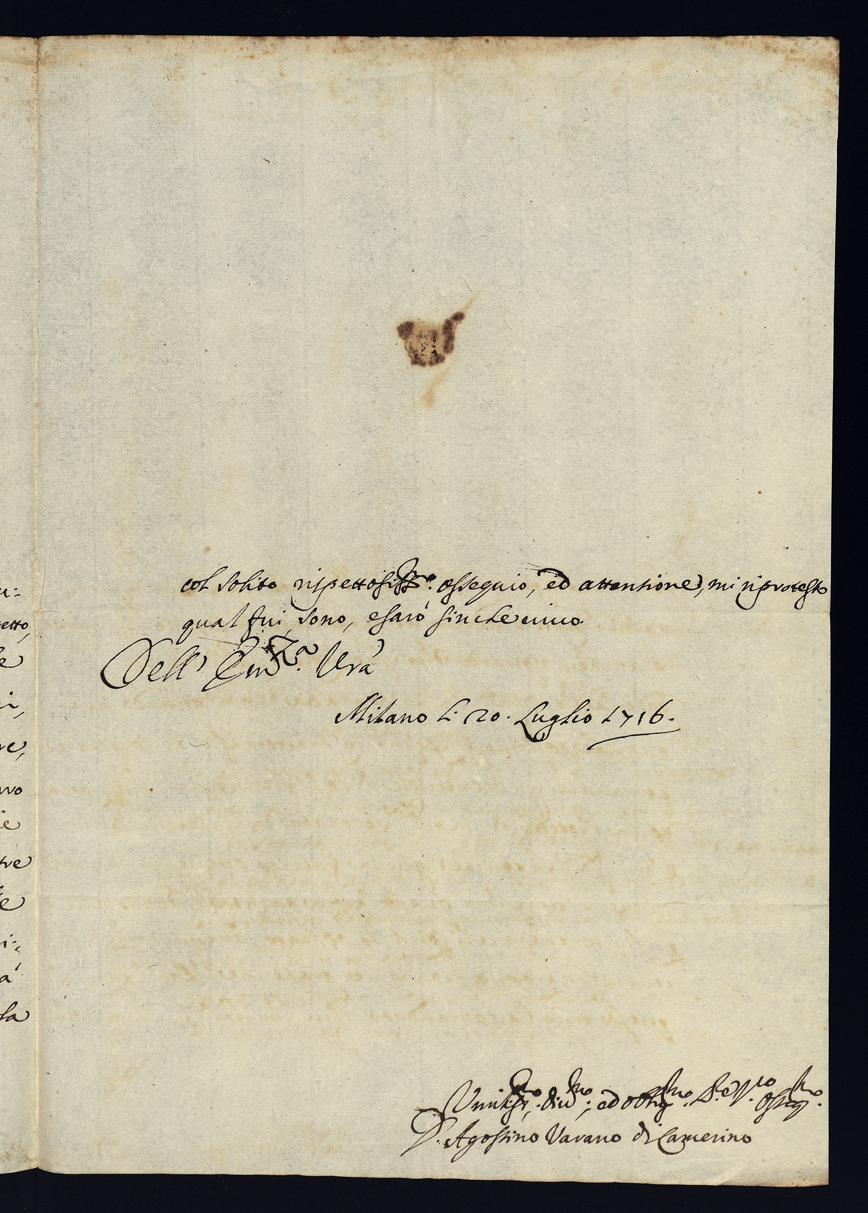 col solito rispettosiss.mo ossequio, ed attentione, mi riprotesto
qual fui, sono, e sarò sin che vivo
Dell' Em.za Vrã
Milano li 20. Luglio 1716.
Umiliss.mo, div.mo, ed obblig.mo S.e V.ro osseq.mo
D. Agostino Varano di Camerino